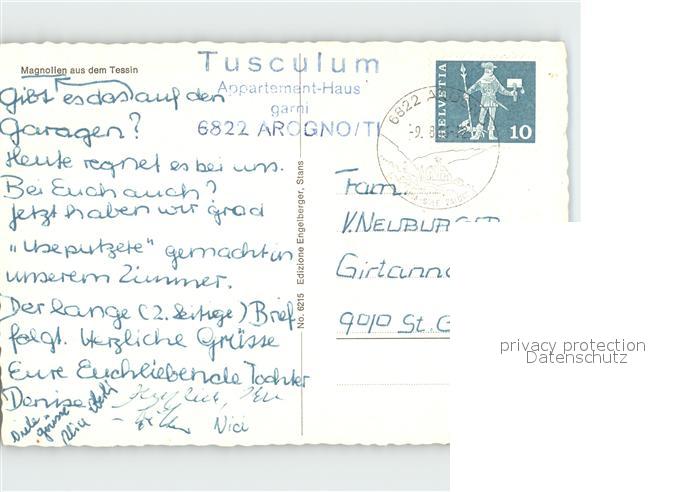 Magnolien aus dem Tessin
Tusculum
Appartement-Haus
garni
6822 AROGNO/TI
6822
-9. 8
HELVETIA
10
Gibt es das auf den
Garagen?
Heute regnet es bei uns.
Bei Euch auch?
Jetzt haben wir grad
"Useputzete" gemacht in
unserem Zimmer.
Der lange (2. Seitige) Brief
folgt. Herzliche Grüsse
Eure Euchliebende Tochter
Denise
Viele
grüsse
Nici
No. 6215 Edizione Engelberger, Stans
Fam.
V. NEUBURGER
Girtann
9010 St. G
privacy protection
Datenschutz